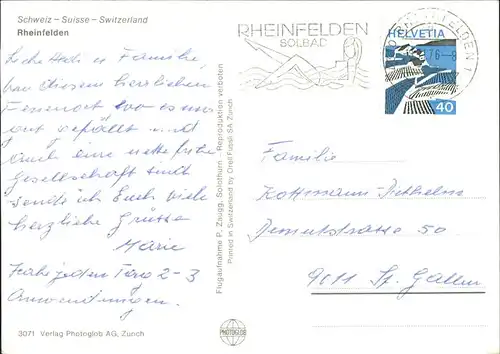 Schweiz – Suisse – Switzerland
Rheinfelden
Liebe Hedi u Familie,
von diesem herrlichen
Ferienort wo es uns
gut gefällt und
auch eine nette frohe
Gesellschaft sind
sende ich Euch viele
herzliche Grüsse
Marie
Habe jeden Tag 2–3
Anwendungen.
3071 Verlag Photoglob AG, Zürich
Flugaufnahme P. Zaugg, Solothurn – Reproduktion verboten
Printed in Switzerland by Orell Füssli SA Zürich
PHOTOGLOB
RHEINFELDEN
SOLBAD
RHEINFELDEN 1
76–8
HELVETIA
40
Familie
Kottmann-
50
9011 St. Gallen